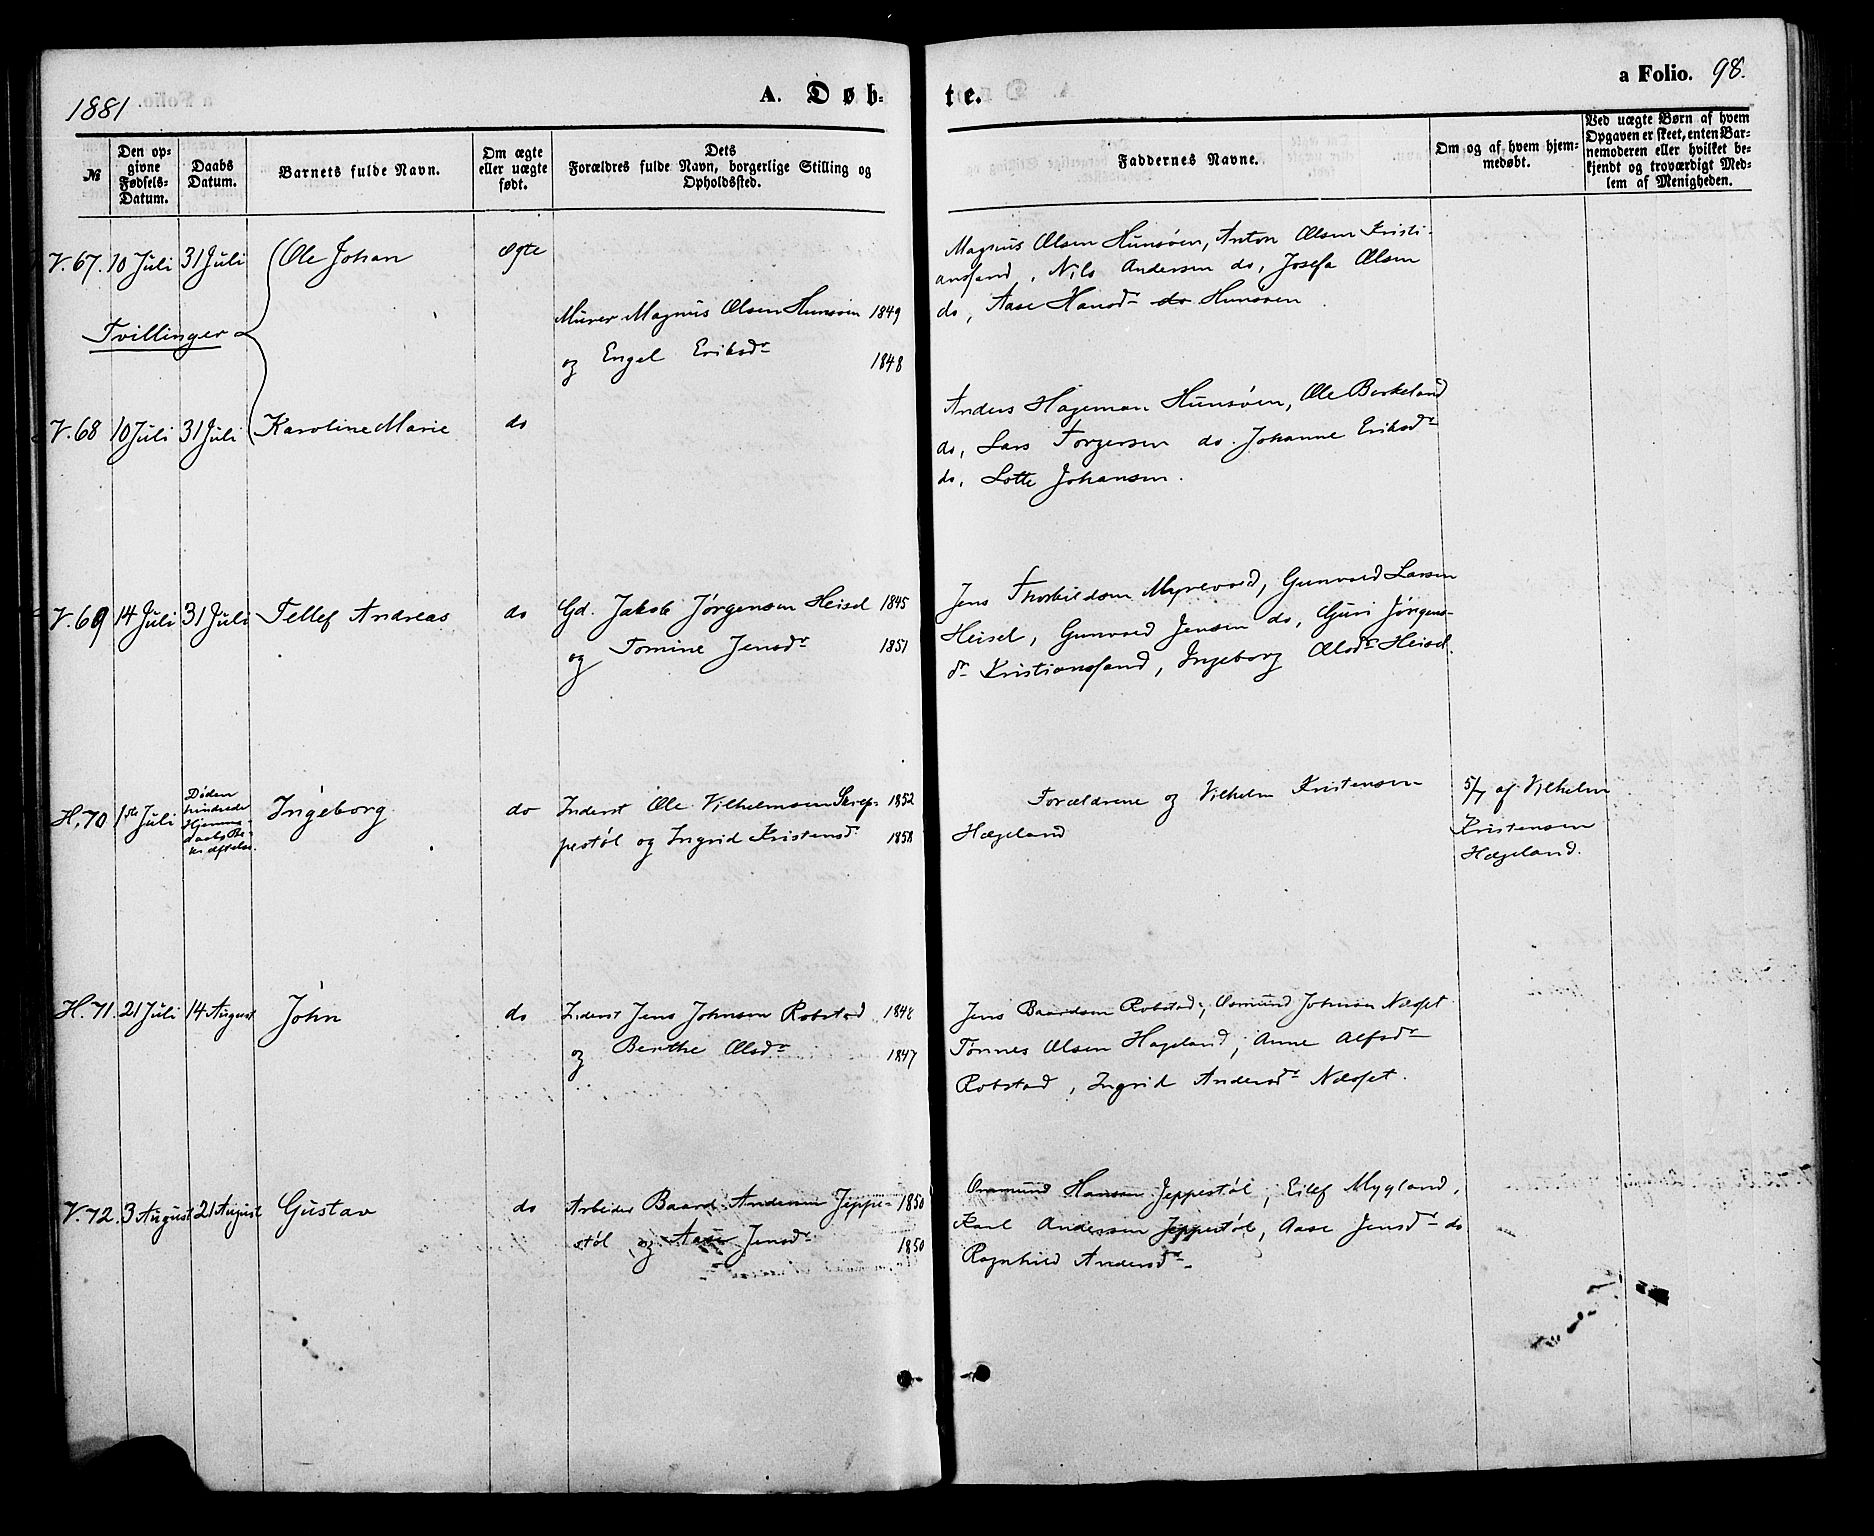 1881
A. Døb-
te.
a Folio. 98.
№
Den op-
givne
Fødsels-
Datum.
Daabs
Datum.
Barnets fulde Navn.
Om ægte
eller uægte
født.
Dets
Forældres fulde Navn, borgerlige Stilling og
Opholdssted.
Faddernes Navne.
Om og af hvem hjem-
medøbt.
Ved uægte Børn af hvem
Opgaven er skeet, enten Bar-
nemoderen eller hvilket be-
kjendt og troværdigt Med-
lem af Menigheden.
V. 67. 10 Juli 31 Juli Ole Johan Ægte
Tvillinger
Murer Magnus Olsen Hunsøen 1849
og Engel Eriksdr 1848
Magnus Olsen Hunsøen, Anton Olsen Kristi-
ansand, Nils Andersen do, Josefa Olsen
do, Aase Hansdr do Hunsøen
V. 68 10 Juli 31 Juli Karoline Marie do
Anders Hageman Hunsøen, Ole Berkeland
do, Lars Torgersen do. Johanne Eriksdr
do, Lotte Johansen.
V. 69 14 Juli 31 Juli Tellef Andreas do
Gd. Jakob Jørgensen Heisel 1845
og Tomine Jensdr 1851
Jens Thorkildsen Myrevold, Gunvald Larsen
Heisel, Gunvald Jensen do, Guri Jørgens-
dr Kristianssand, Ingeborg Olsdr Heisel.
H. 70 1ste Juli
Døden
hindrede
Hjemme-
daabs Be-
kræftelse.
Ingeborg do
Inderst Ole Vilhelmsen Skrep- 1852
pestøl og Ingrid Kristensdr 1858
Forældrene og Vilhelm Kristensen
Hægeland
5/7 af Vilhelm
Kristensen
Hægeland.
H. 71. 21 Juli 14 August John do
Inderst Jens Johnsen Robstad 1848
og Berthe Olsdr 1847
Jens Baardsen Robstad, Osmund Johnsen
Tønnes Olsen Hageland, Anne Alfsdr
Robstad, Ingrid Andersdr
V. 72. 3 August 21 August Gustav do
Arbeider Baard Andersen Jeppe- 1850
støl og Aase Jensdr 1850
Osmund Hansen Jeppestøl, Eilef Mygland,
Karl Andersen Jeppestøl, Aase Jensdr do
Ragnhild Andersdr